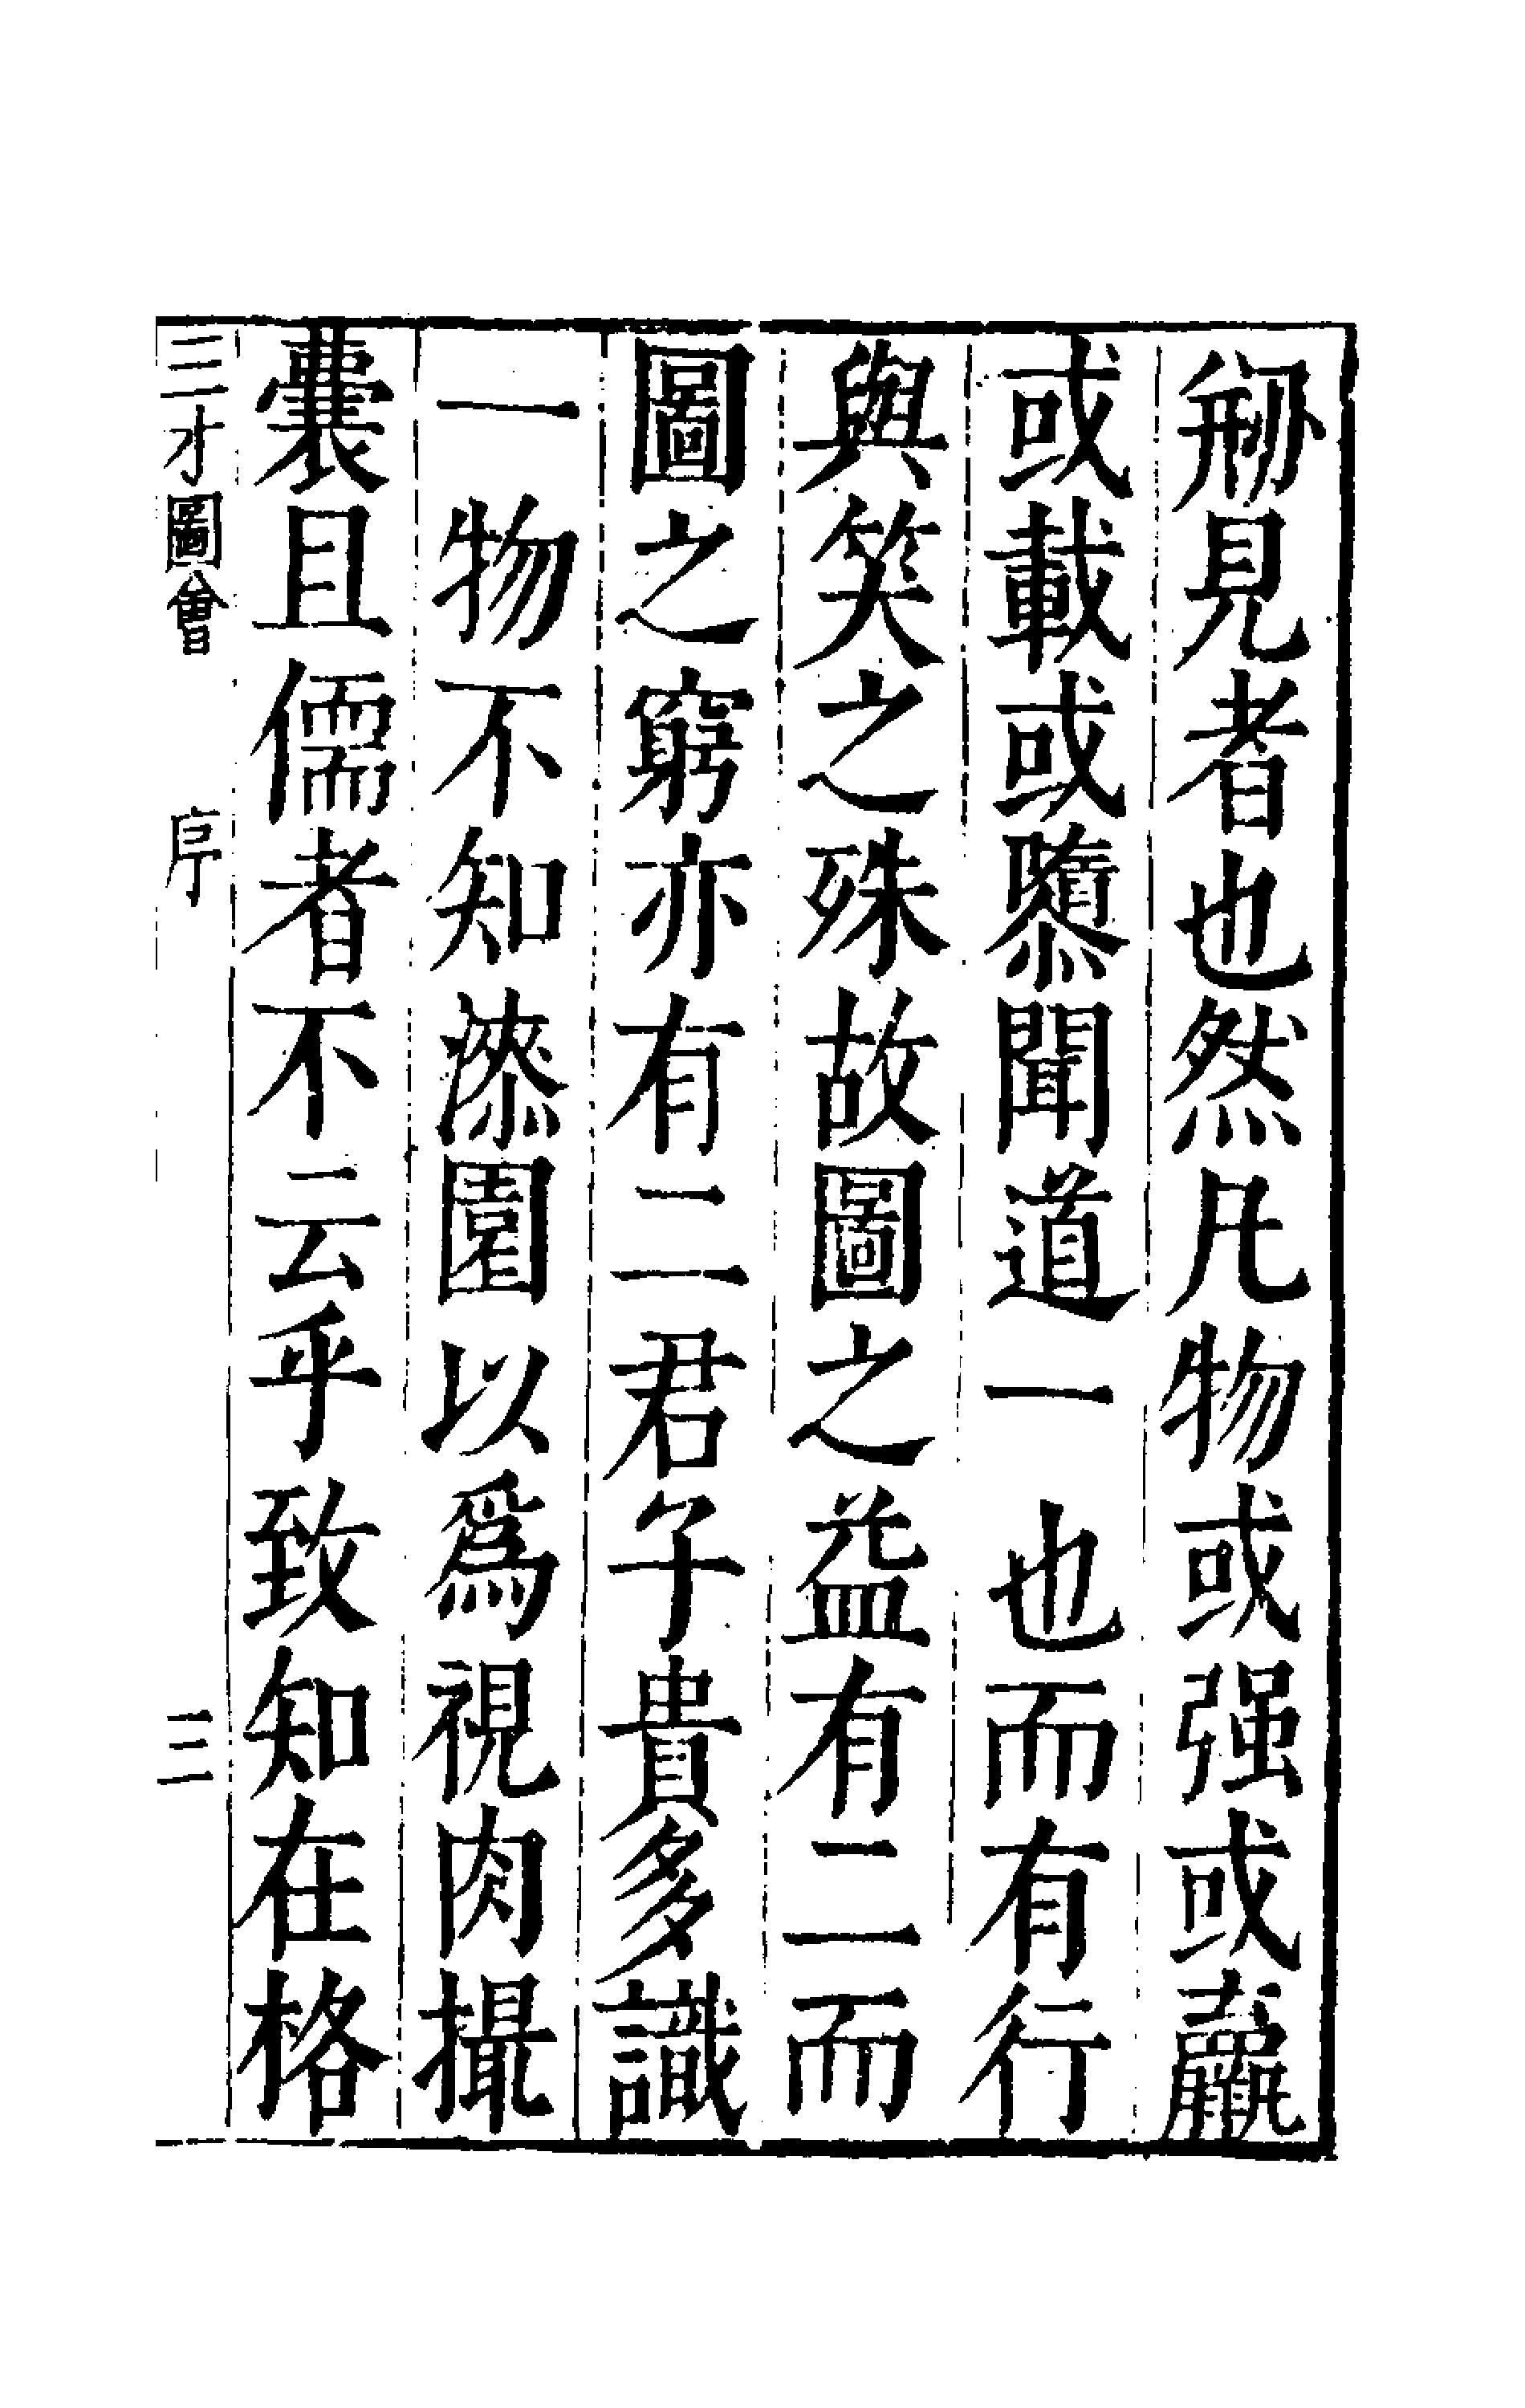 剙見者也然凡物或强或羸
或載或隳聞道一也而有行
與笑之殊故圖之益有二而
圖之窮亦有二君子貴多識
一物不知漆園以爲視肉撮
囊且儒者不云乎致知在格
三才圖會 序 三